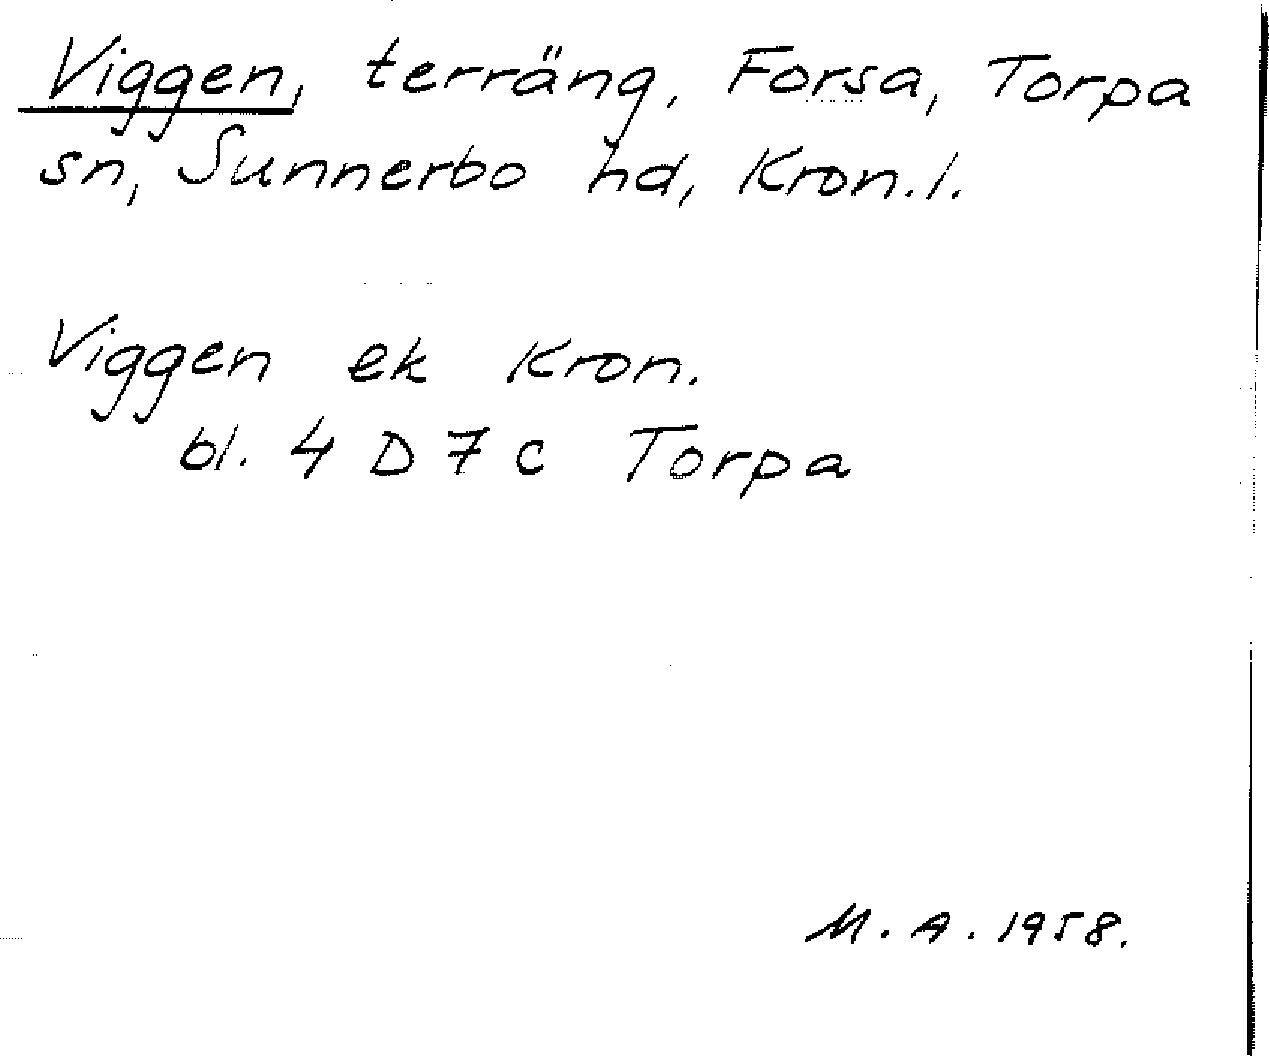 Viggen, terräng, Forsa, Torpa
sn, Sunnerbo hd, Kron. l.
Viggen ek Kron.
bl. 4 D 7 c Torpa
M. A. 1958.